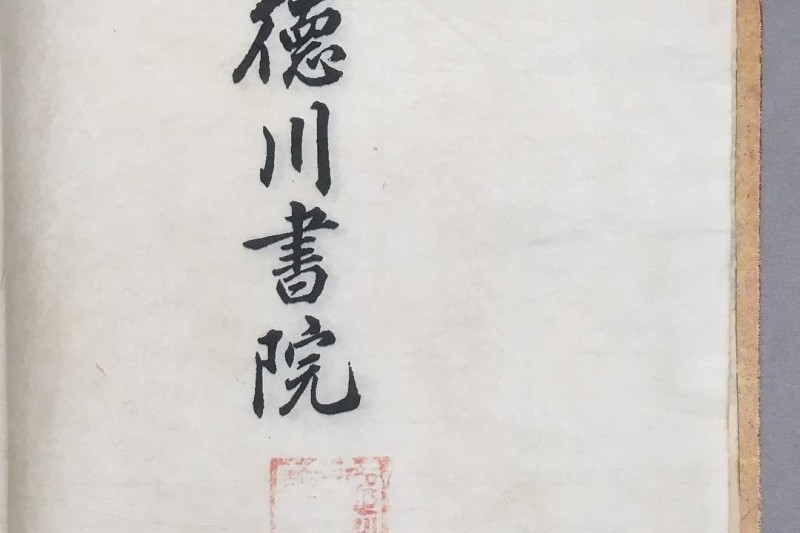 德川書院